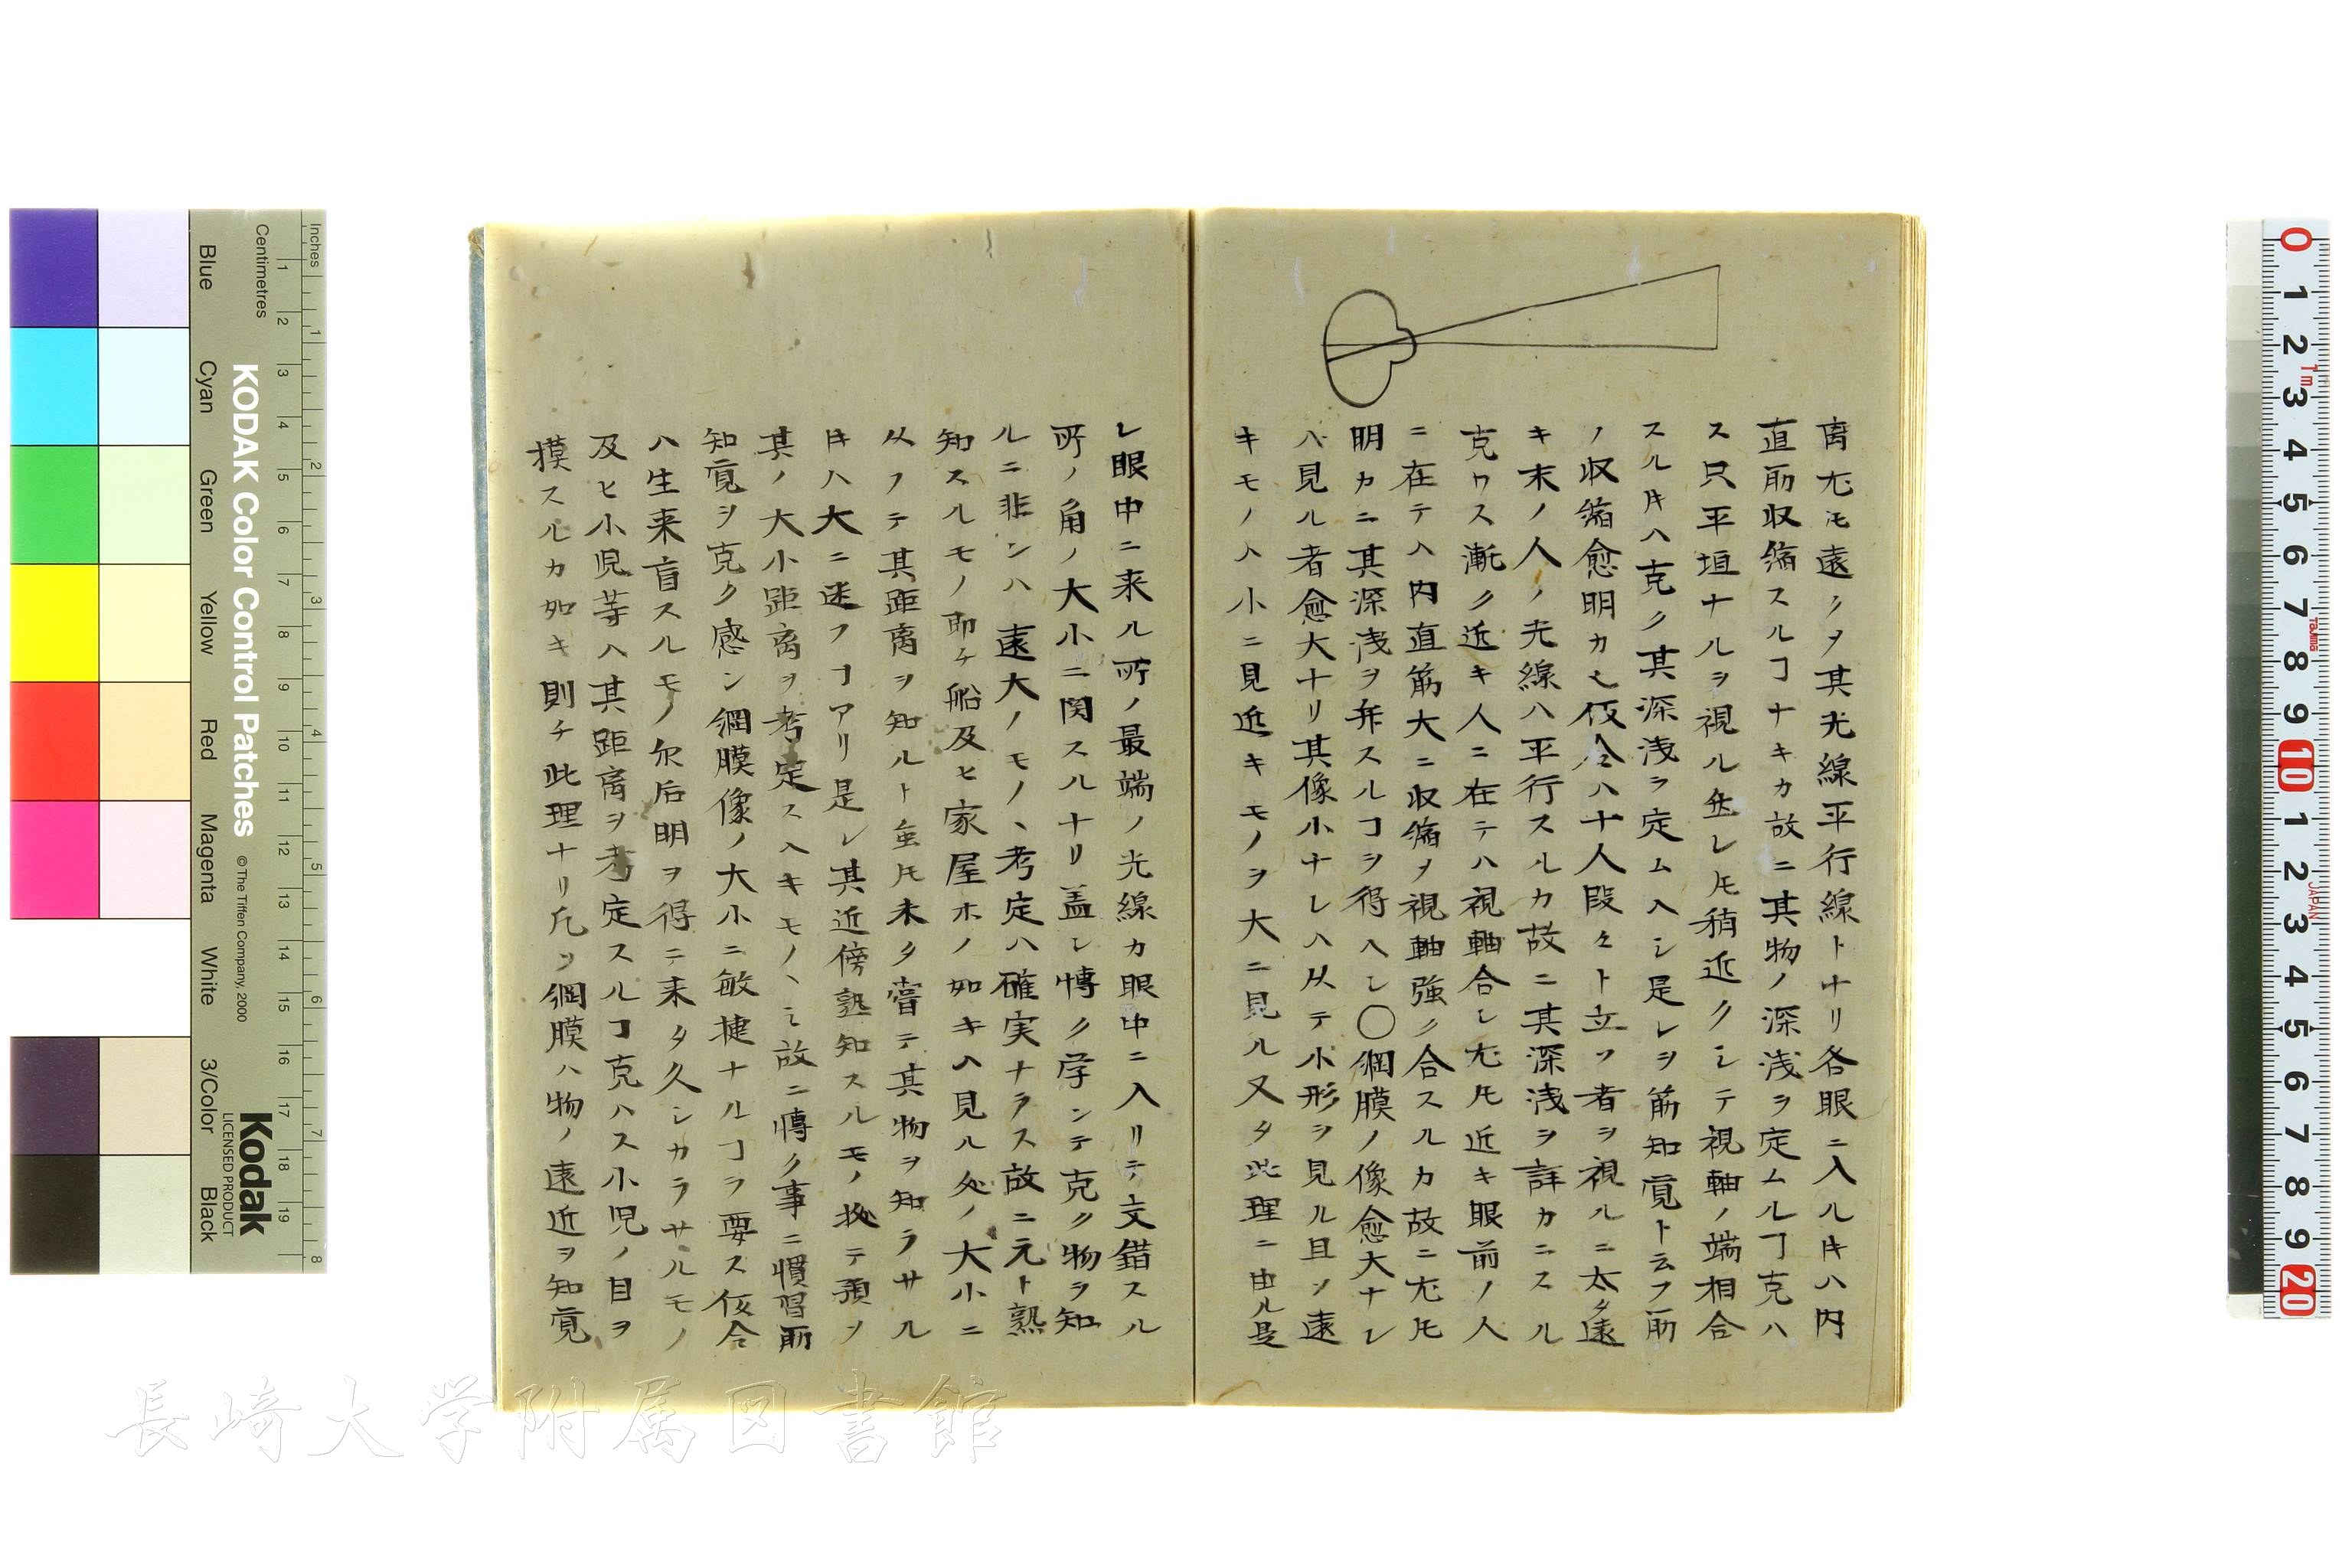 离尤モ遠クヲ其光線平行線トナリ各眼ニ入ル𪜈ハ内
直筋収縮スルヿナキカ故ニ其物ノ深浅ヲ定ムルヿ克ハ
ス只平坦ナルヲ視ル𫝶レ𪜈稍近クシテ視軸ノ端相合
スル𪜈ハ克ク其深浅ヲ定ムヘシ是レヲ筋知覚ト云フ筋
ノ収縮愈明カ也仮令ハ十人段々ト立ツ者ヲ視ルニ太タ遠
キ末ノ人ノ光線ハ平行スルカ故ニ其深浅ヲ詳カニスル
克ワス漸ク近キ人ニ在テハ視軸合シ尤𪜈近キ眼前ノ人
ニ在テハ内直筋大ニ収縮ヲ視軸強ク合スルカ故ニ尤𪜈
明カニ其深浅ヲ弁スルヿヲ得ヘシ〇網膜ノ像愈大ナレ
ハ見ル者愈大ナリ其像小ナレハ从テ小形ヲ見ル且ツ遠
キモノハ小ニ見近キモノヲ大ニ見ル又タ此理ニ由ル是
レ眼中ニ来ル所ノ最端ノ光線カ眼中ニ入リテ交錯スル
所ノ角ノ大小ニ関スルナリ盖シ慱ク学ンテ克ク物ヲ知
ルニ非ンハ遠大ノモノヽ考定ハ確実ナラス故ニ元ト熟
知スルモノ即チ船及ヒ家屋ホノ如キハ見ル処ノ大小ニ
从フテ其距离ヲ知ルト虽𪜈未タ嘗テ其物ヲ知ラサル
𪜈ハ大ニ迷フヿアリ是レ其近傍熟知スルモノ拠テ預メ
其ノ大小距离ヲ考定スヘキモノヽ也故ニ慱ク事ニ慣習所
知覚ヲ克ク感シ網膜像ノ大小ニ敏捷ナルヿヲ要ス仮令
ハ生来盲スルモノ尓后明ヲ得ニ来タ久シカラサルモノ
及ヒ小児等ハ其距离ヲ考定スルヿ克ハス小児ノ目ヲ
摸スルカ如キ則チ此理ナリ凡ソ網膜ハ物ノ遠近ヲ知覚
長崎大学附属図書館
KODAK Color Control Patches
© The Tiffen Company, 2000
Kodak
LICENSED PRODUCT
Inches 1 2 3 4 5 6 7 8
Centimetres 1 2 3 4 5 6 7 8 9 10 11 12 13 14 15 16 17 18 19
Blue Cyan Green Yellow Red Magenta White 3/Color Black
0 1 2 3 4 5 6 7 8 9 10 1 2 3 4 5 6 7 8 9 20
1m Tajima JAPAN